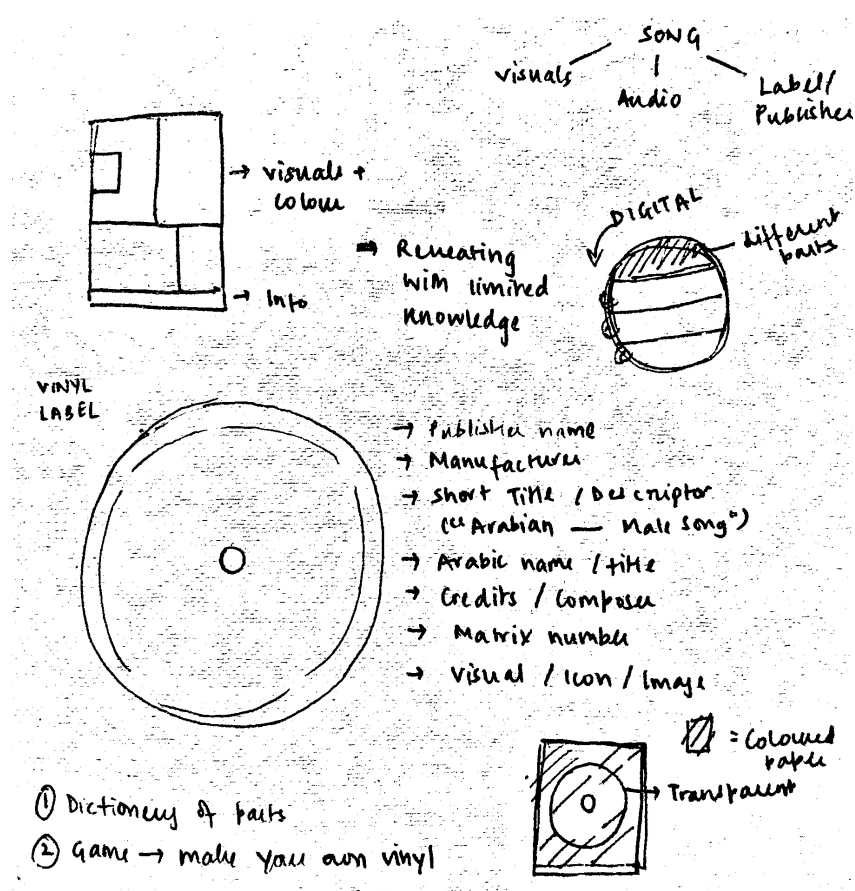 SONG
visuals
Audio
Label/
Publisher
→ visuals +
colour
→ Info
→ Recreating
with limited
knowledge
DIGITAL
different
parts
VINYL
LABEL
→ Publisher name
→ Manufacturer
→ Short Title / Descriptor
("Arabian — Male Song")
→ Arabic name / title
→ Credits / Composer
→ Matrix number
→ Visual / Icon / Image
= Coloured
paper
→ Transparent
① Dictionary of parts
② Game → make your own vinyl